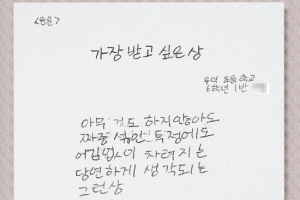 <동시>
가장 받고 싶은 상
우덕 초등학교
6학년 1반
아무 것도 하지않아도
짜증 섞인 투정에도
어김없이 차려지는
당연하게 생각되는
그런상